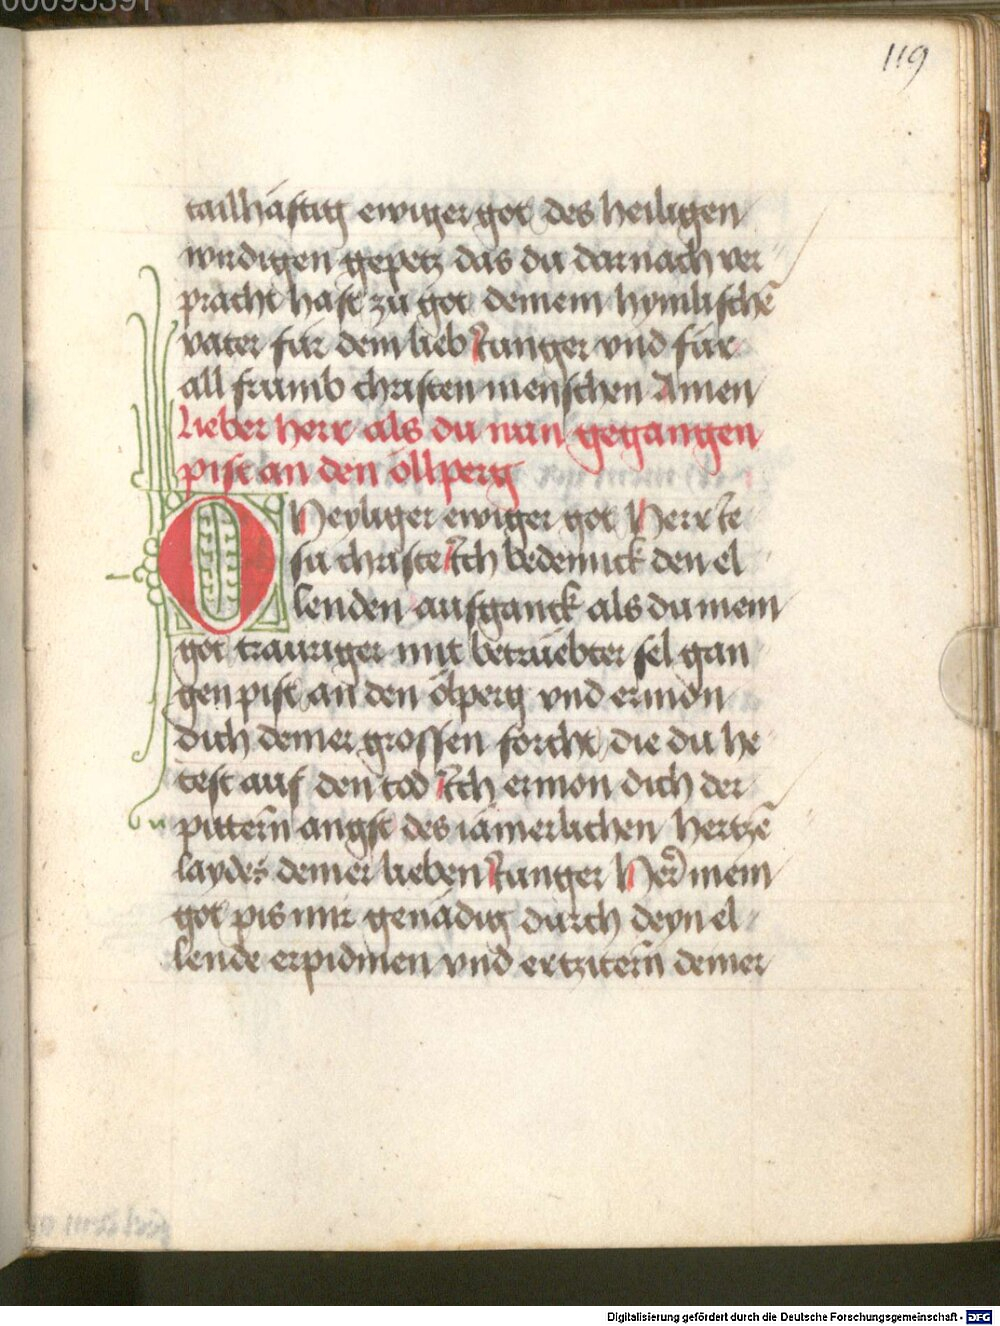 00095391
119
tailhäftig ewiger got des heiligen
wirdigen gepetz das du darnach ver
pracht hast zu got deinem hymlischē
vater für dein lieb Iunger vnd für
all frumb christen menschen Amen
Lieber herr als du nun gegangen
pist an den öllperg
O Heyliger ewiger got Herr Ie
su christe Ich bedennck den el
lenden ausganck als du mein
got trauriger mit betrüebter sel gan
gen pist an den ölperg vnd ermon
dich deiner grossen forcht die du he
test auf den tod Ich ermon dich der
pittern angst des iämerlichen hertzē
laydes deiner lieben Iunger Her mein
got pis mir genädig durch deyn el
lende erpidmen vnd ertzitern deiner
Digitalisierung gefördert durch die Deutsche Forschungsgemeinschaft - DFG